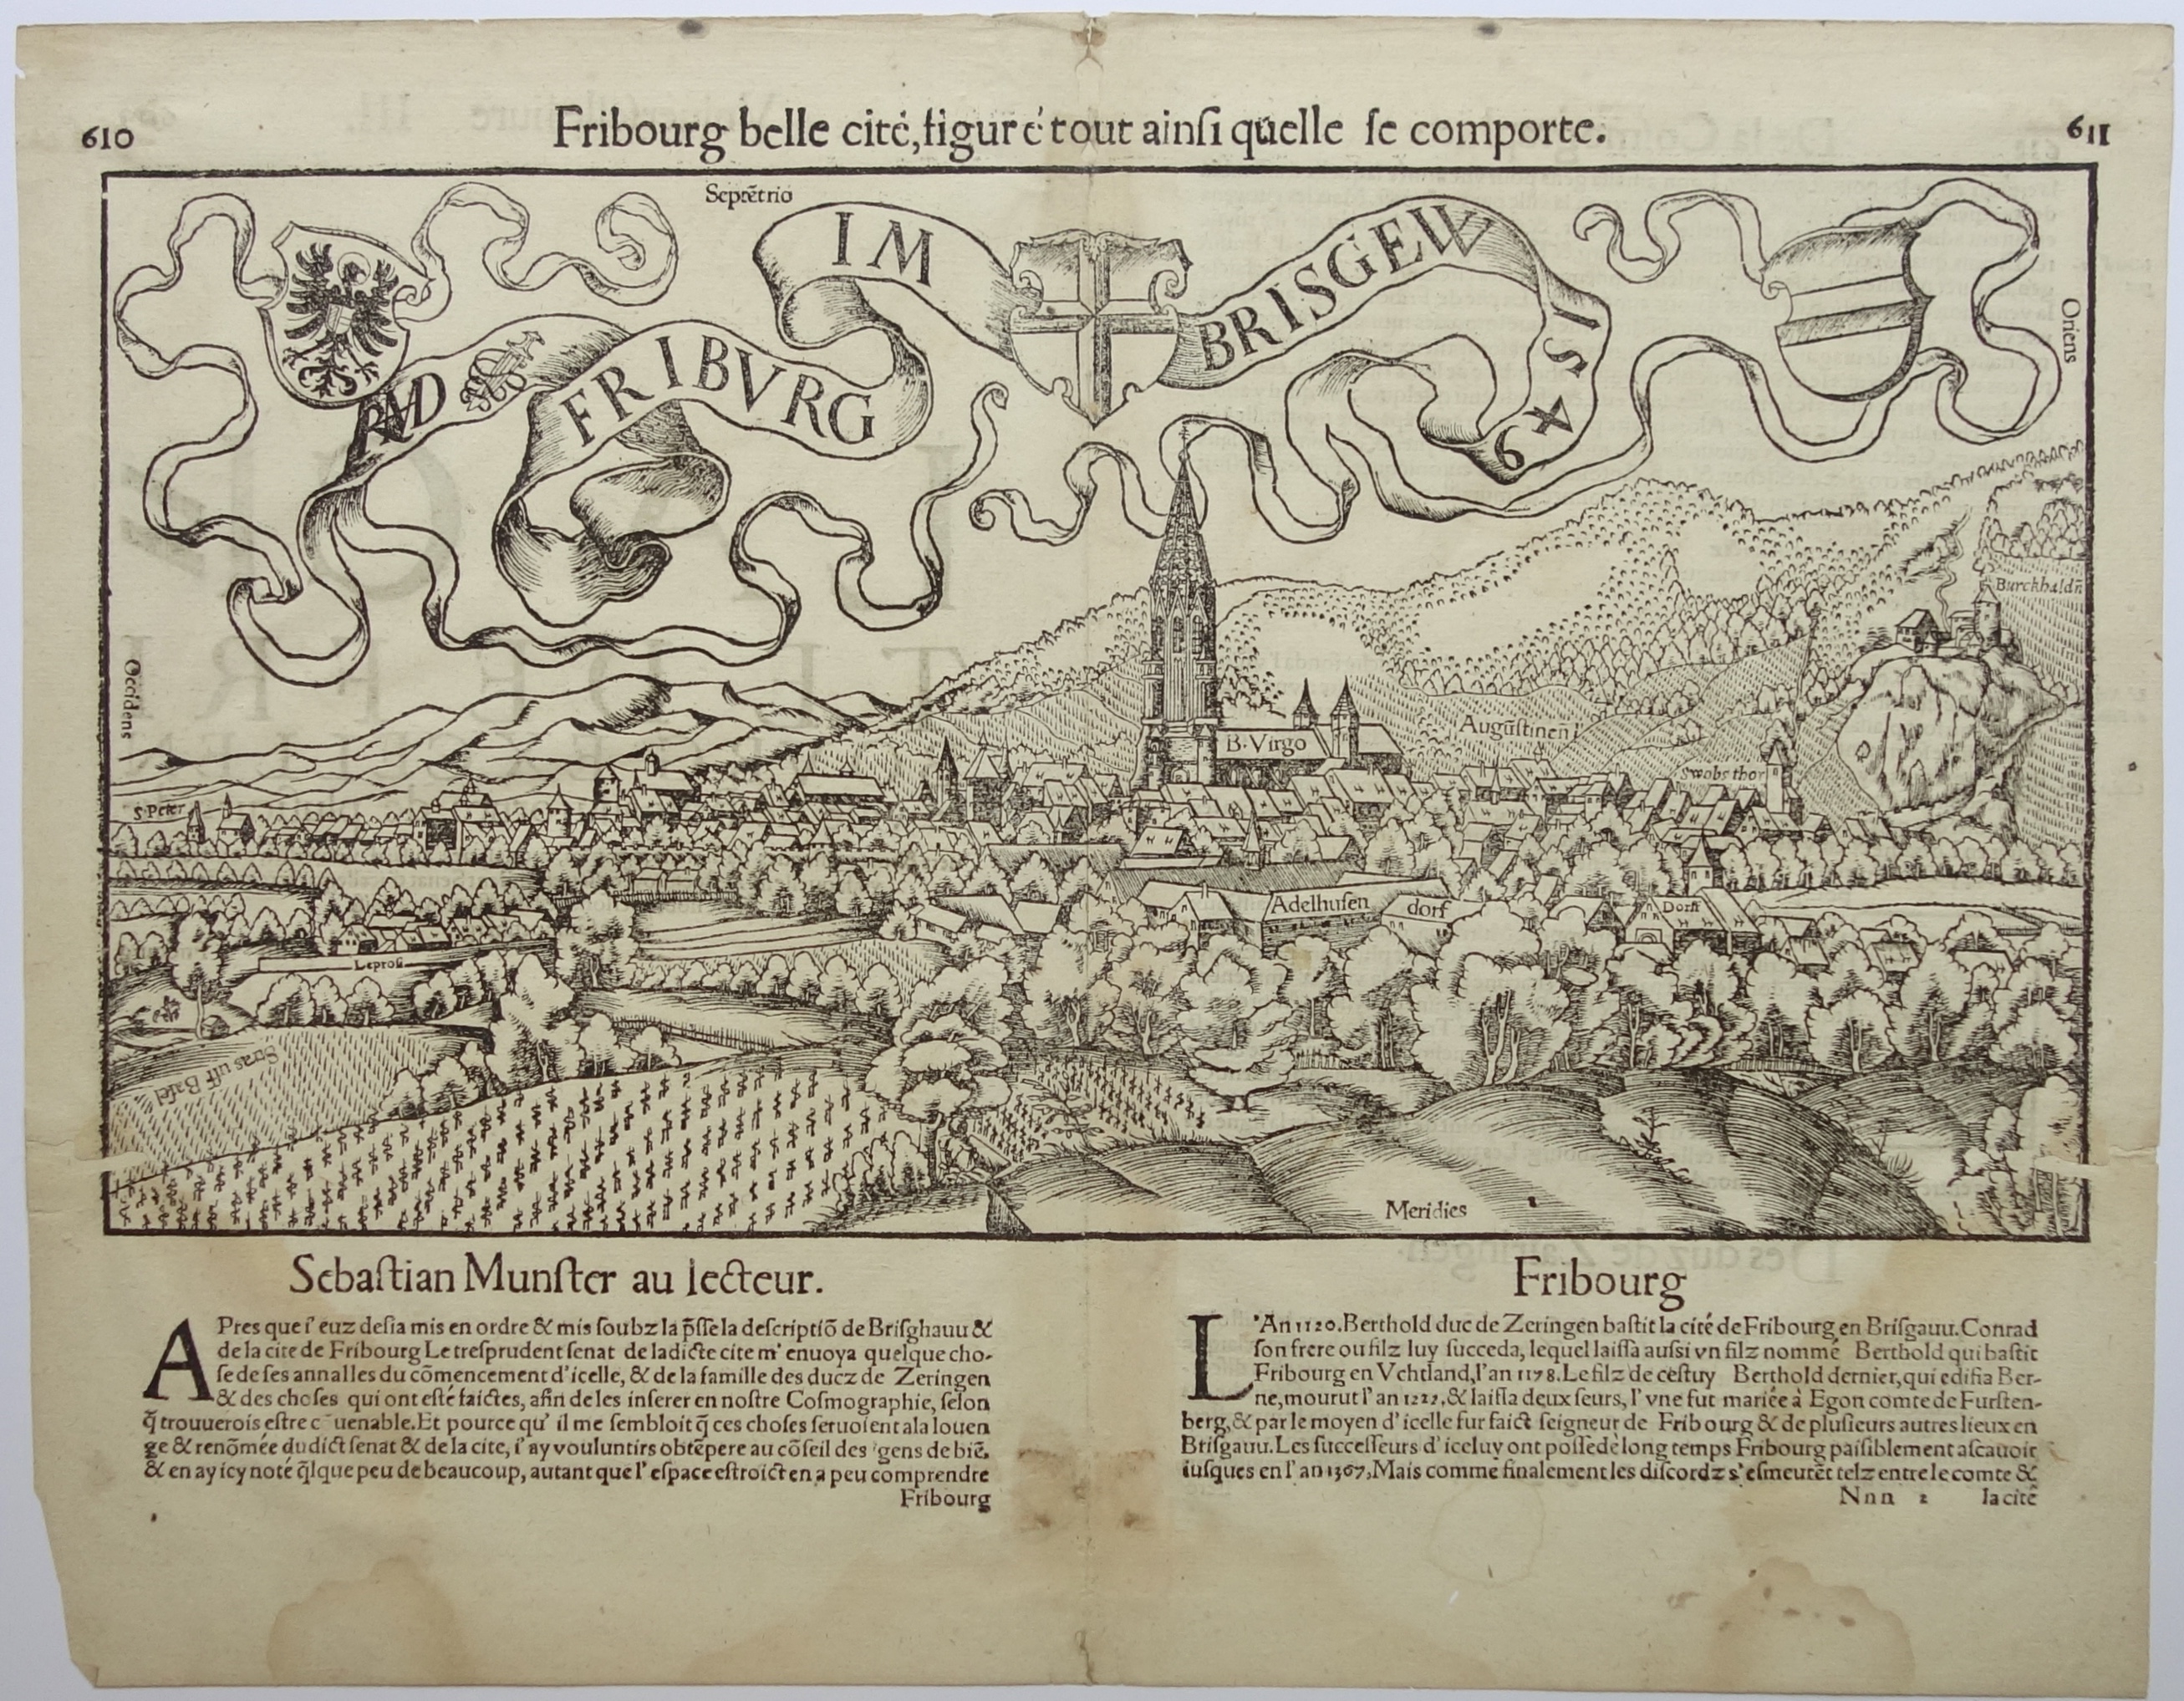 610
Fribourg belle cité, figuré tout ainſi quelle ſe comporte.
611
Septētrio
IM
BRISGEW
1549
FRIBVRG
Oriens
Occidens
Burckhaldñ
B. Virgo
Auguſtineñ
Swobs thor
S. Peter
Adelhuſen
dorf
Dorff
Leproſi
Stras uff Baſel
Meridies
Sebaſtian Munſter au lecteur.
APres que i' euz deſia mis en ordre & mis ſoubz la p̄ſſe la deſcriptiō de Briſghauu &
de la cite de Fribourg Le treſprudent ſenat de ladicte cite m' enuoya quelque cho-
ſe de ſes annalles du cōmencement d'icelle, & de la famille des ducz de Zeringen
& des choſes qui ont eſté faictes, afin de les inſerer en noſtre Coſmographie, ſelon
q̄ trouuerois eſtre uenable. Et pource qu' il me ſembloit q̄ ces choſes ſeruoient ala louen
ge & renōmée dudict ſenat & de la cite, i' ay vouluntirs obtēpere au cōſeil des gens de biē,
& en ay icy noté q̄lque peu de beaucoup, autant que l' eſpace eſtroict en a peu comprendre
Fribourg
Fribourg
L'An 1120. Berthold duc de Zeringen baſtit la cité de Fribourg en Briſgauu. Conrad
ſon frere ou filz luy ſucceda, lequel laiſſa auſſi vn filz nommé Berthold qui baſtit
Fribourg en Vchtland, l'an 1178. Le filz de ceſtuy Berthold dernier, qui edifia Ber-
ne, mourut l' an 1222, & laiſſa deux ſeurs, l' vne fut mariée à Egon comte de Furſten-
berg, & par le moyen d' icelle fur faict ſeigneur de Fribourg & de pluſieurs autres lieux en
Briſgauu. Les ſucceſſeurs d' iceluy ont poſſedé long temps Fribourg paiſiblement aſcauoir
iuſques en l' an 1367, Mais comme finalement les diſcordz s' eſmeutēt telz entre le comte &
Nnn 2 la cité